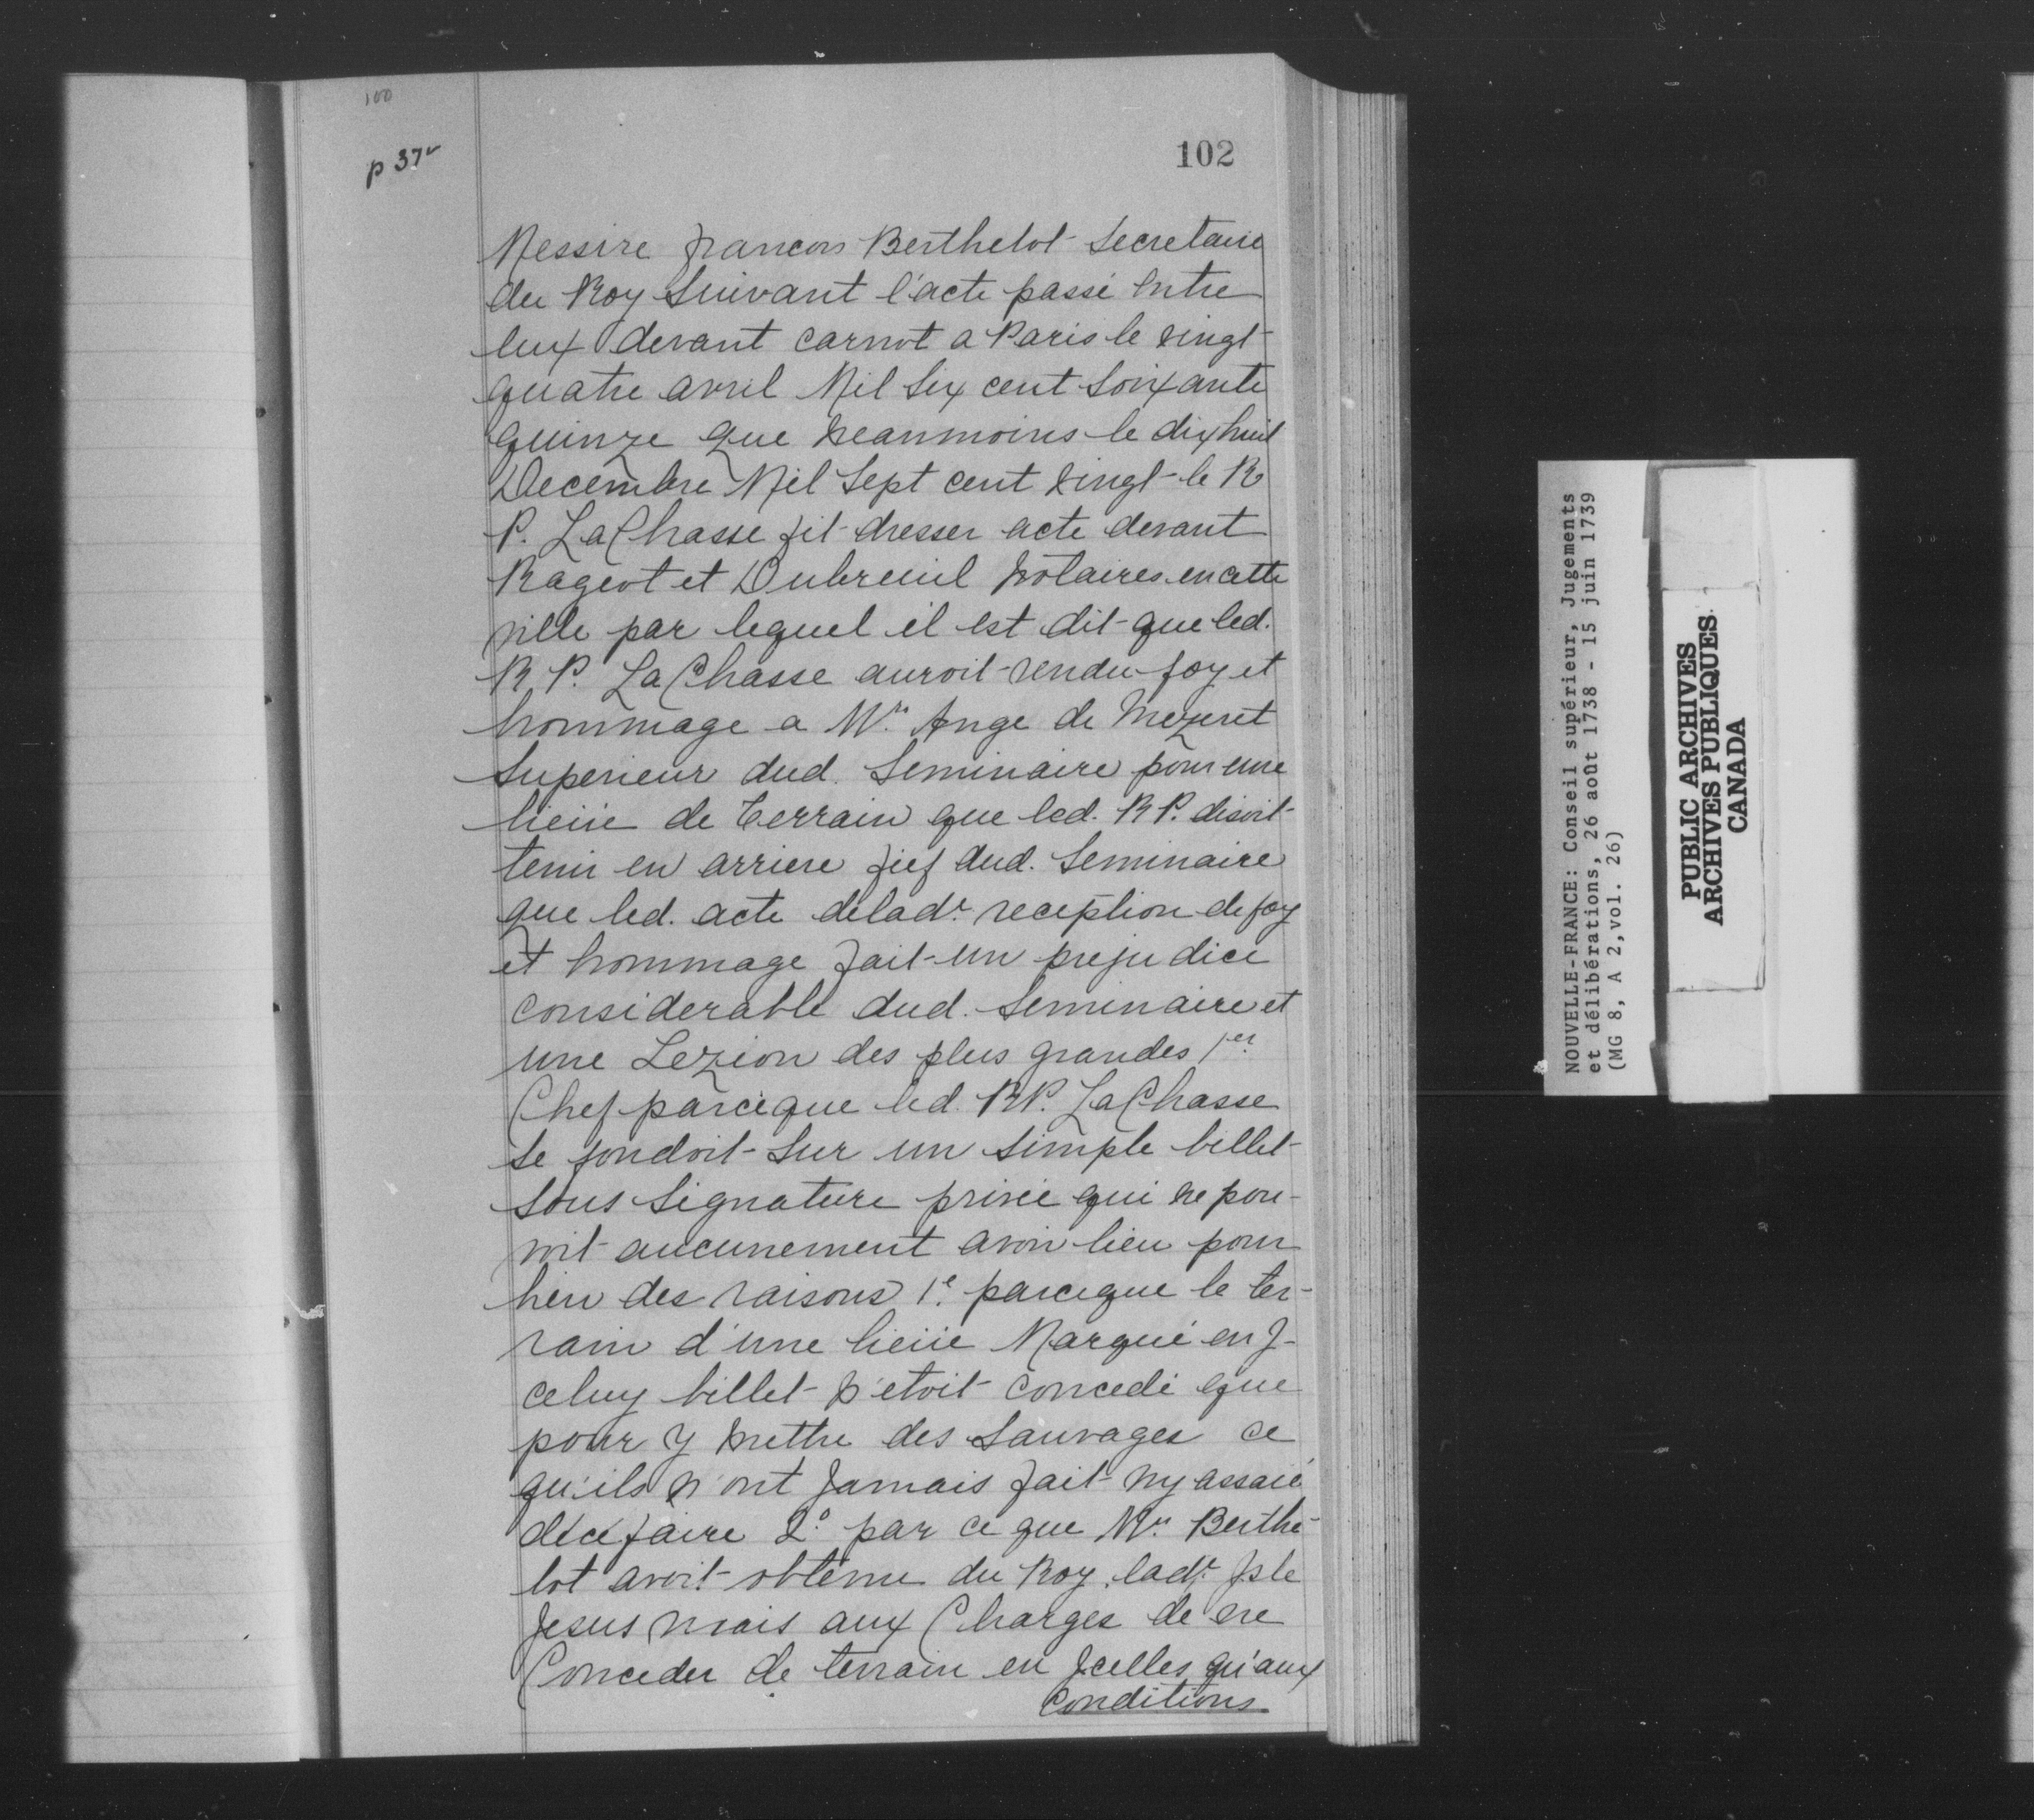 100
p 37v
102
Messire francois Berthelot Secretaire
du Roy Suivant l'acte passé Entre
Eux devant carnot a Paris le vingt
quatre avril Mil Six cent Soixante
quinze que neanmoins le dixhuit
Decembre Mil Sept cent vingt le R
P. La Chasse fit dresser acte devant
Rageot et Dubreuil Notaires en cette
ville par lequel il est dit que led.
R P. La Chasse auroit rendu foy et
hommage a Mre. Ange de Mezeret
Superieur dud. Seminaire pour une
lieüe de terrain que led. R P. disoit
tenir en arriere fief dud. Seminaire
que led. acte de lade. reception de foy
et hommage fait un prejudice
considerable dud. Seminaire et
une Lezion des plus grandes 1er.
Chef parceque led. R P. La Chasse
Se fondoit Sur un Simple billet
Sous Signature privée qui ne pou-
voit aucunement avoir lieu pour
bien des raisons 1e. parceque le ter-
rain d'une lieüe Marqué en J-
celuy billet N'etoit Concedé que
pour y Mettre des Sauvages ce
qu'ils n'ont Jamais fait ny assaié
dece faire 2o. par ce que Mre. Berthe-
lot avoit obtenu du Roy lade. Jsle
Jesus mais aux Charges de ne
Conceder de terrain en Jcelles qu'aux
Conditions
NOUVELLE-FRANCE: Conseil supérieur, Jugements
et délibérations, 26 août 1738 - 15 juin 1739
(MG 8, A 2,vol. 26)
PUBLIC ARCHIVES
ARCHIVES PUBLIQUES
CANADA